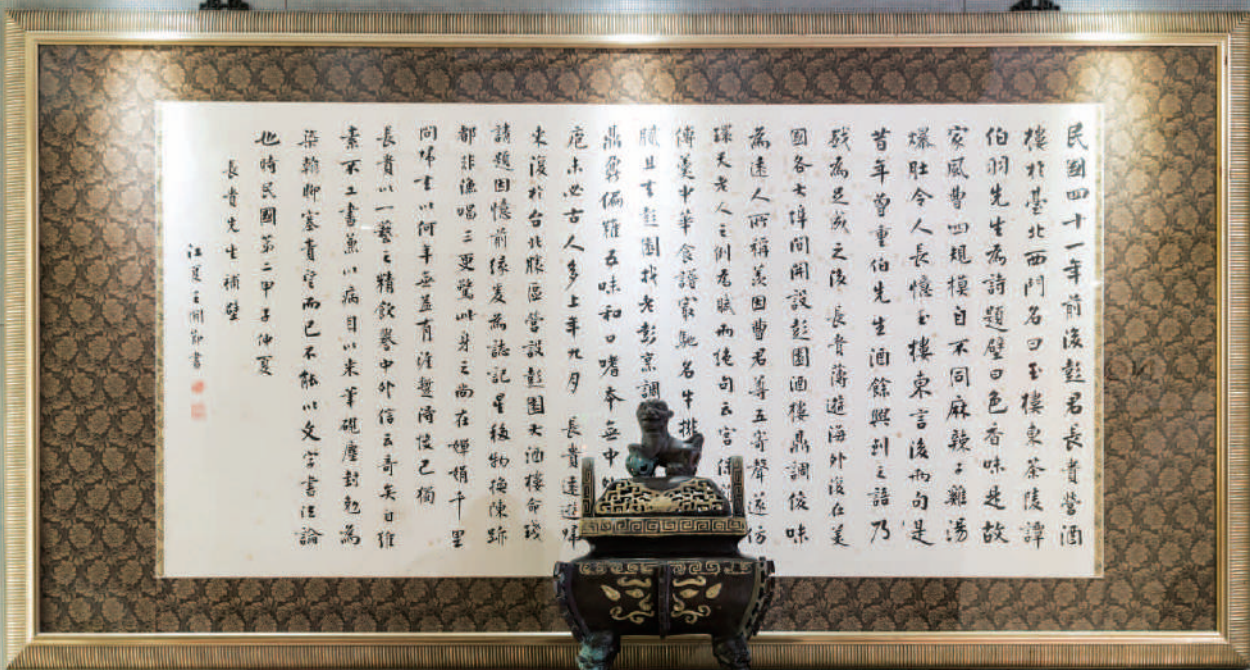 民國四十一年前後彭君長貴營酒
樓於臺北西門名曰玉樓東茶陵譚
伯羽先生為詩題壁曰色香味是故
家風曹四規模自不同麻辣子雞湯
爆肚令人長憶玉樓東言後兩句是
昔年曾重伯先生酒餘興到之語乃
殘為足成之後長貴薄遊海外復在美
國各大埠間開設彭園酒樓鼎調俊味
為遠人所稱羨因曹君尊五寄聲遂仿
環天老人之例為賦兩絕句云宮
傳羹中華食譜最馳名牛排
臕且重彭園找老彭烹調
鼎鼐偏雖五味和口嗜本無中
庖未必古人多上年九月長貴遠遊歸
來復於台北勝區營設彭園大酒樓命殘
請題因憶前緣爰為誌記星移物換陳跡
都非漁唱三更驚此身之尚在嬋娟千里
問歸去以何年無益有涯蹔得懷已獨
長貴以一藝之精飲譽中外信云奇矣自維
素不工書兼以病目以來筆硯塵封勉為
染翰聊塞責望而已不能以文字書法論
也時民國第二甲子仲夏
長貴先生補壁
江夏王開節書